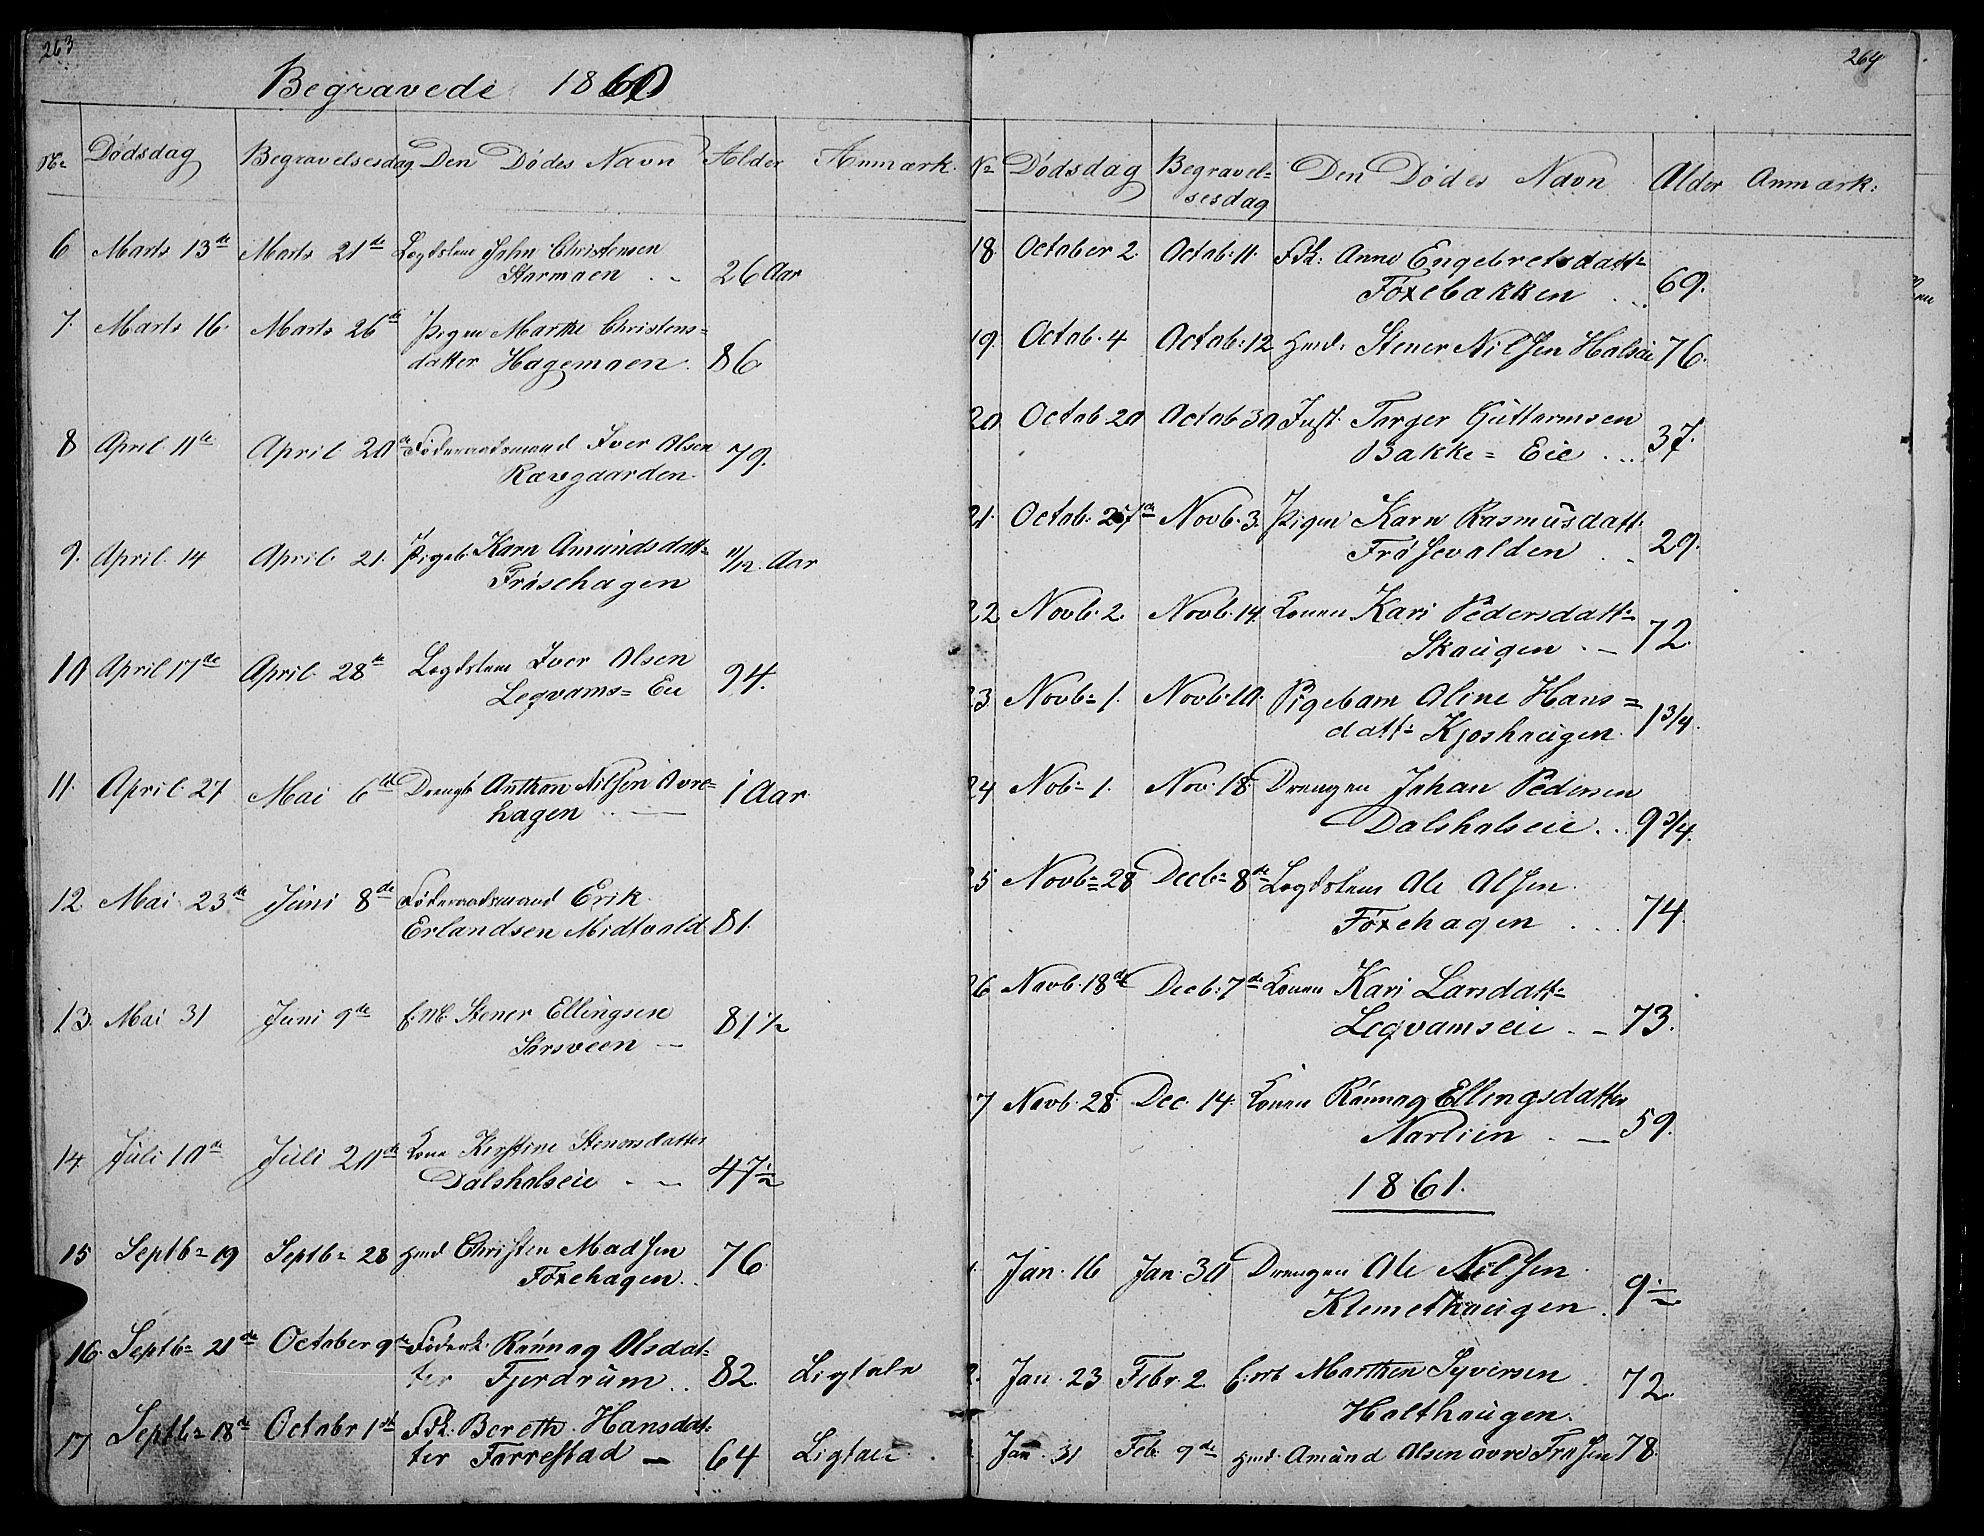 263
Begravede 1860
No Dødsdag Begravelsesdag Den Dødes Navn Alder Anmærk.
6 Marts 13de Marts 21de Lægdslem John Christensen
Stormoen .. 26 Aar
7. Marts 16. Marts 26de Pigen Marthe Christens=
datter Hagemoen. 86
8 April 11te April 20de Føderaadsmand Iver Olsen
Rævgaarden. 79.
9. April 14 April 21. Pigeb. Karn Amundsdatt=
Frøsehagen 11/12 Aar
10 April 17de April 28de Lægdslem Iver Olsen
Legvams= Eie 94.
11. April 27 Mai 6te Drengb Anthon Nilsen Øvre=
hagen .. 1 Aar
12 Mai 23de Juni 8de Føderaadsmand Erik
Erlandsen Midtvold 81.
13. Mai 31 Juni 9de Stener Ellingsen
Sørsveen — 81 1/2
14. Juli 10de Juli 20de Kone Kirstine Stenersdatter
Dalsholseie . — 47 1/2
15 Septb= 19 Septb= 28 Hmd Christen Madsen
Foxehagen .. 76
16. Septb= 21de October 9de Føderk. Rønnog Olsdat=
ter Fjerdrum .. 82. Ligtale
17 Septb= 18de Octobr 1ste Fdk. Bereth Hansdat=
ter Forrestad — 64 Ligtale
264
No Dødsdag Begravel=
sesdag Den Dødes Navn Alder Anmærk:
18. October 2. Octob. 11. Fdk: Anne Engebretsdatt=
Foxebakken ... 69.
19. Octob. 4 Octob. 12 Hmd. Stener Nilsen Holseie 76.
20 Octob 20 Octob. 30 Inst. Torger Guttormsen
Bakke= Eie ... 37.
21. Octob. 27de Novb. 3. Pigen Karn Rasmusdatt.
Frøsevolden .. 29.
22 Novb. 2. Novb. 14. Konen Kari Pedersdatt=
Skaugen . — 72.
23 Novb= 1. Novb. 10. Pigebarn Oline Hans=
datt= Kjoshaugen. 1 3/4.
24 Nob= 1. Nov. 18. Drengen Johan Pedersen
Dalsholseie .. 9 3/4.
25 Novb= 28 Decb= 8de Lægdslem Ole Olsen.
Foxehagen ... 74.
26 Novb. 18de Decb. 7de Konen Kari Larsdatt=
Legvamseie . — 73.
27 Novb. 28. Dec. 14. Konen Rønnog Ellingsdatter
Norlien . — 59.
1861.
1. Jan. 16 Jan. 30 Drengen Ole Nilsen.
Klemethaugen. 9 1/2
2. Jan. 23 Febr. 2. Morthen Syversen
Holthaugen. 72.
Jan. 31 Feb. 9de Hmd. Amund Olsen øvre Frøsen 78.